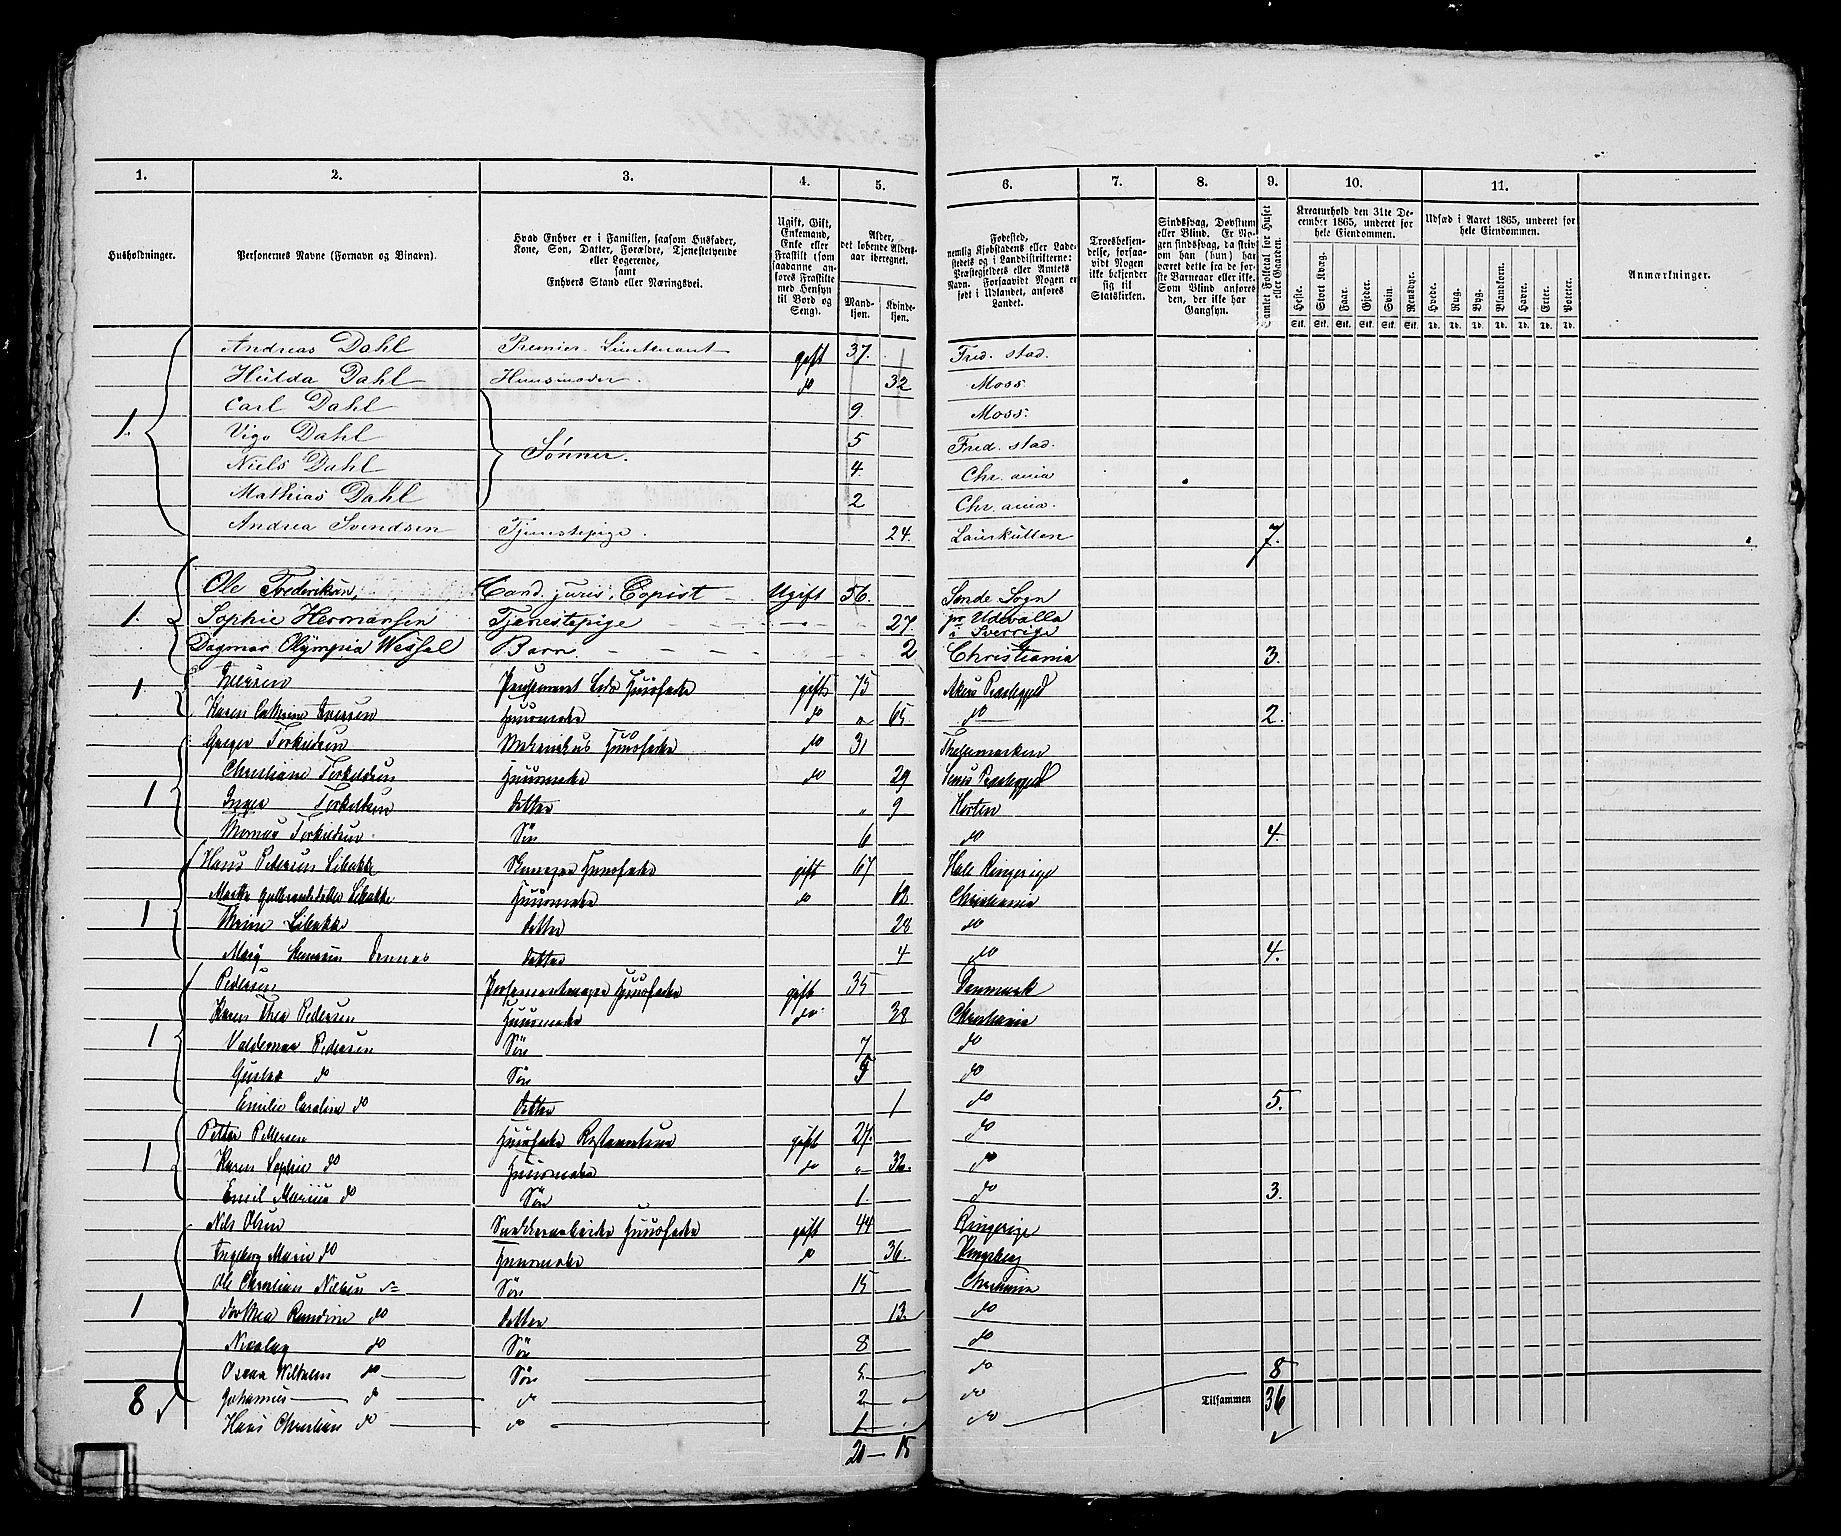 1. 2. 3. 4. 5. 6. 7. 8. 9. 10. 11.
Husholdninger.
Personernes Navne (Fornavn og Binavn).
Hvad Enhver er i Familien, saasom Husfader, Kone, Søn, Datter, Forældre, Tjenestetyende eller Logerende, samt Enhvers Stand eller Næringsvei.
Ugift, Gift, Enkemand, Enke eller Fraskilt (som saadanne anføres Fraskilte med Hensyn til Bord og Seng).
Alder, det løbende Aldersaar iberegnet.
Mandkjøn. Kvindekjøn.
Fødested, nemlig Kjøbstadens eller Ladestedets og i Landdistrikterne: Præstegjeldets eller Amtets Navn. Forsaavidt Nogen er født i Udlandet, anføres Landet.
Troesbekjendelse, forsaavidt Nogen ikke bekjender sig til Statskirken.
Sindssvag, Døvstum eller Blind. Er Nogen sindssvag, da skriv om han (hun) har været dette fra de første Barneaar eller ikke. Som Blind anføres den, der ikke har Gangsyn.
Samlet Folketal for Huset eller Gaarden.
Kreaturhold den 31te December 1865, underet for hele Eiendommen.
Heste. Stort Kvæg. Faar. Gjeder. Svin. Rensdyr.
Stk. Stk. Stk. Stk. Stk. Stk.
Udsæd i Aaret 1865, underet for hele Eiendommen.
Hvede. Rug. Byg. Blandkorn. Havre. Erter. Poteter.
Td. Td. Td. Td. Td. Td. Td.
Anmærkninger.
Andreas Dahl Premier Lieutenant gift 37. Fred. stad.
Hulda Dahl Huusmoder. do 32 Moss.
Carl Dahl 9. Moss.
1. Vigo Dahl Sønner. 5 Fred. stad.
Niels Dahl 4. Chr. ania
Mathias Dahl 2 Chr. ania.
Andrea Svendsen Tjenestepige. 24. 7.
Ole Frederiksen, Cand. juris, Copist Ugift 56. Sande Sogn
1. Sophie Hermansen Tjenestepige 27. pr Udevalla i Sverrige
Dagmar Olympia Wessel Barn 2 Christiania 3.
1 Iversen gift 75 Akers Præstegjeld
Karen Cathrine Iversen Huusmoder do " 65. do 2.
Torkildsen Mekanikus Huusfader do 31 Thelemarken
Christiane Torkildsen Huusmoder do 29 Præstegjeld
1 Inger Torkildsen datter " 9 Horten
Torkildsen Søn 6 do 4.
Hans Pedersen Libakke Huusfader gift 67 Hole Ringerige
Libakke Huusmoder do 62 Christiania
1 Libakke datter 28 do
datter 4 do 4.
Pedersen Huusfader gift 35 Danmark
Karen Thea Pedersen Huusmoder do 38 Christiania
1 Valdemar Pedersen Søn 7 do
Gustav do Søn 5 do
Emilie Caroline do datter 1 do 5.
Petter Pettersen Huusfader gift 27. do
1 Karen Sophie do Huusmoder do " 32. do
Emil Marius do Søn 1. do 3.
Nils Olsen Huusfader gift 44 Ringerige
Ingeborg Marie do Huusmoder do 36. Kongsberg
Ole Christian Nilsen Søn 15 Christiania
1 Dorthea Randine do datter 13. do
Nicolay do Søn 8 do
Oscar Wilhelm do Søn 5 do 8
8 Johannes do do 2 do Tilsammen 36
Hans Christian do do 1. do
20 — 15